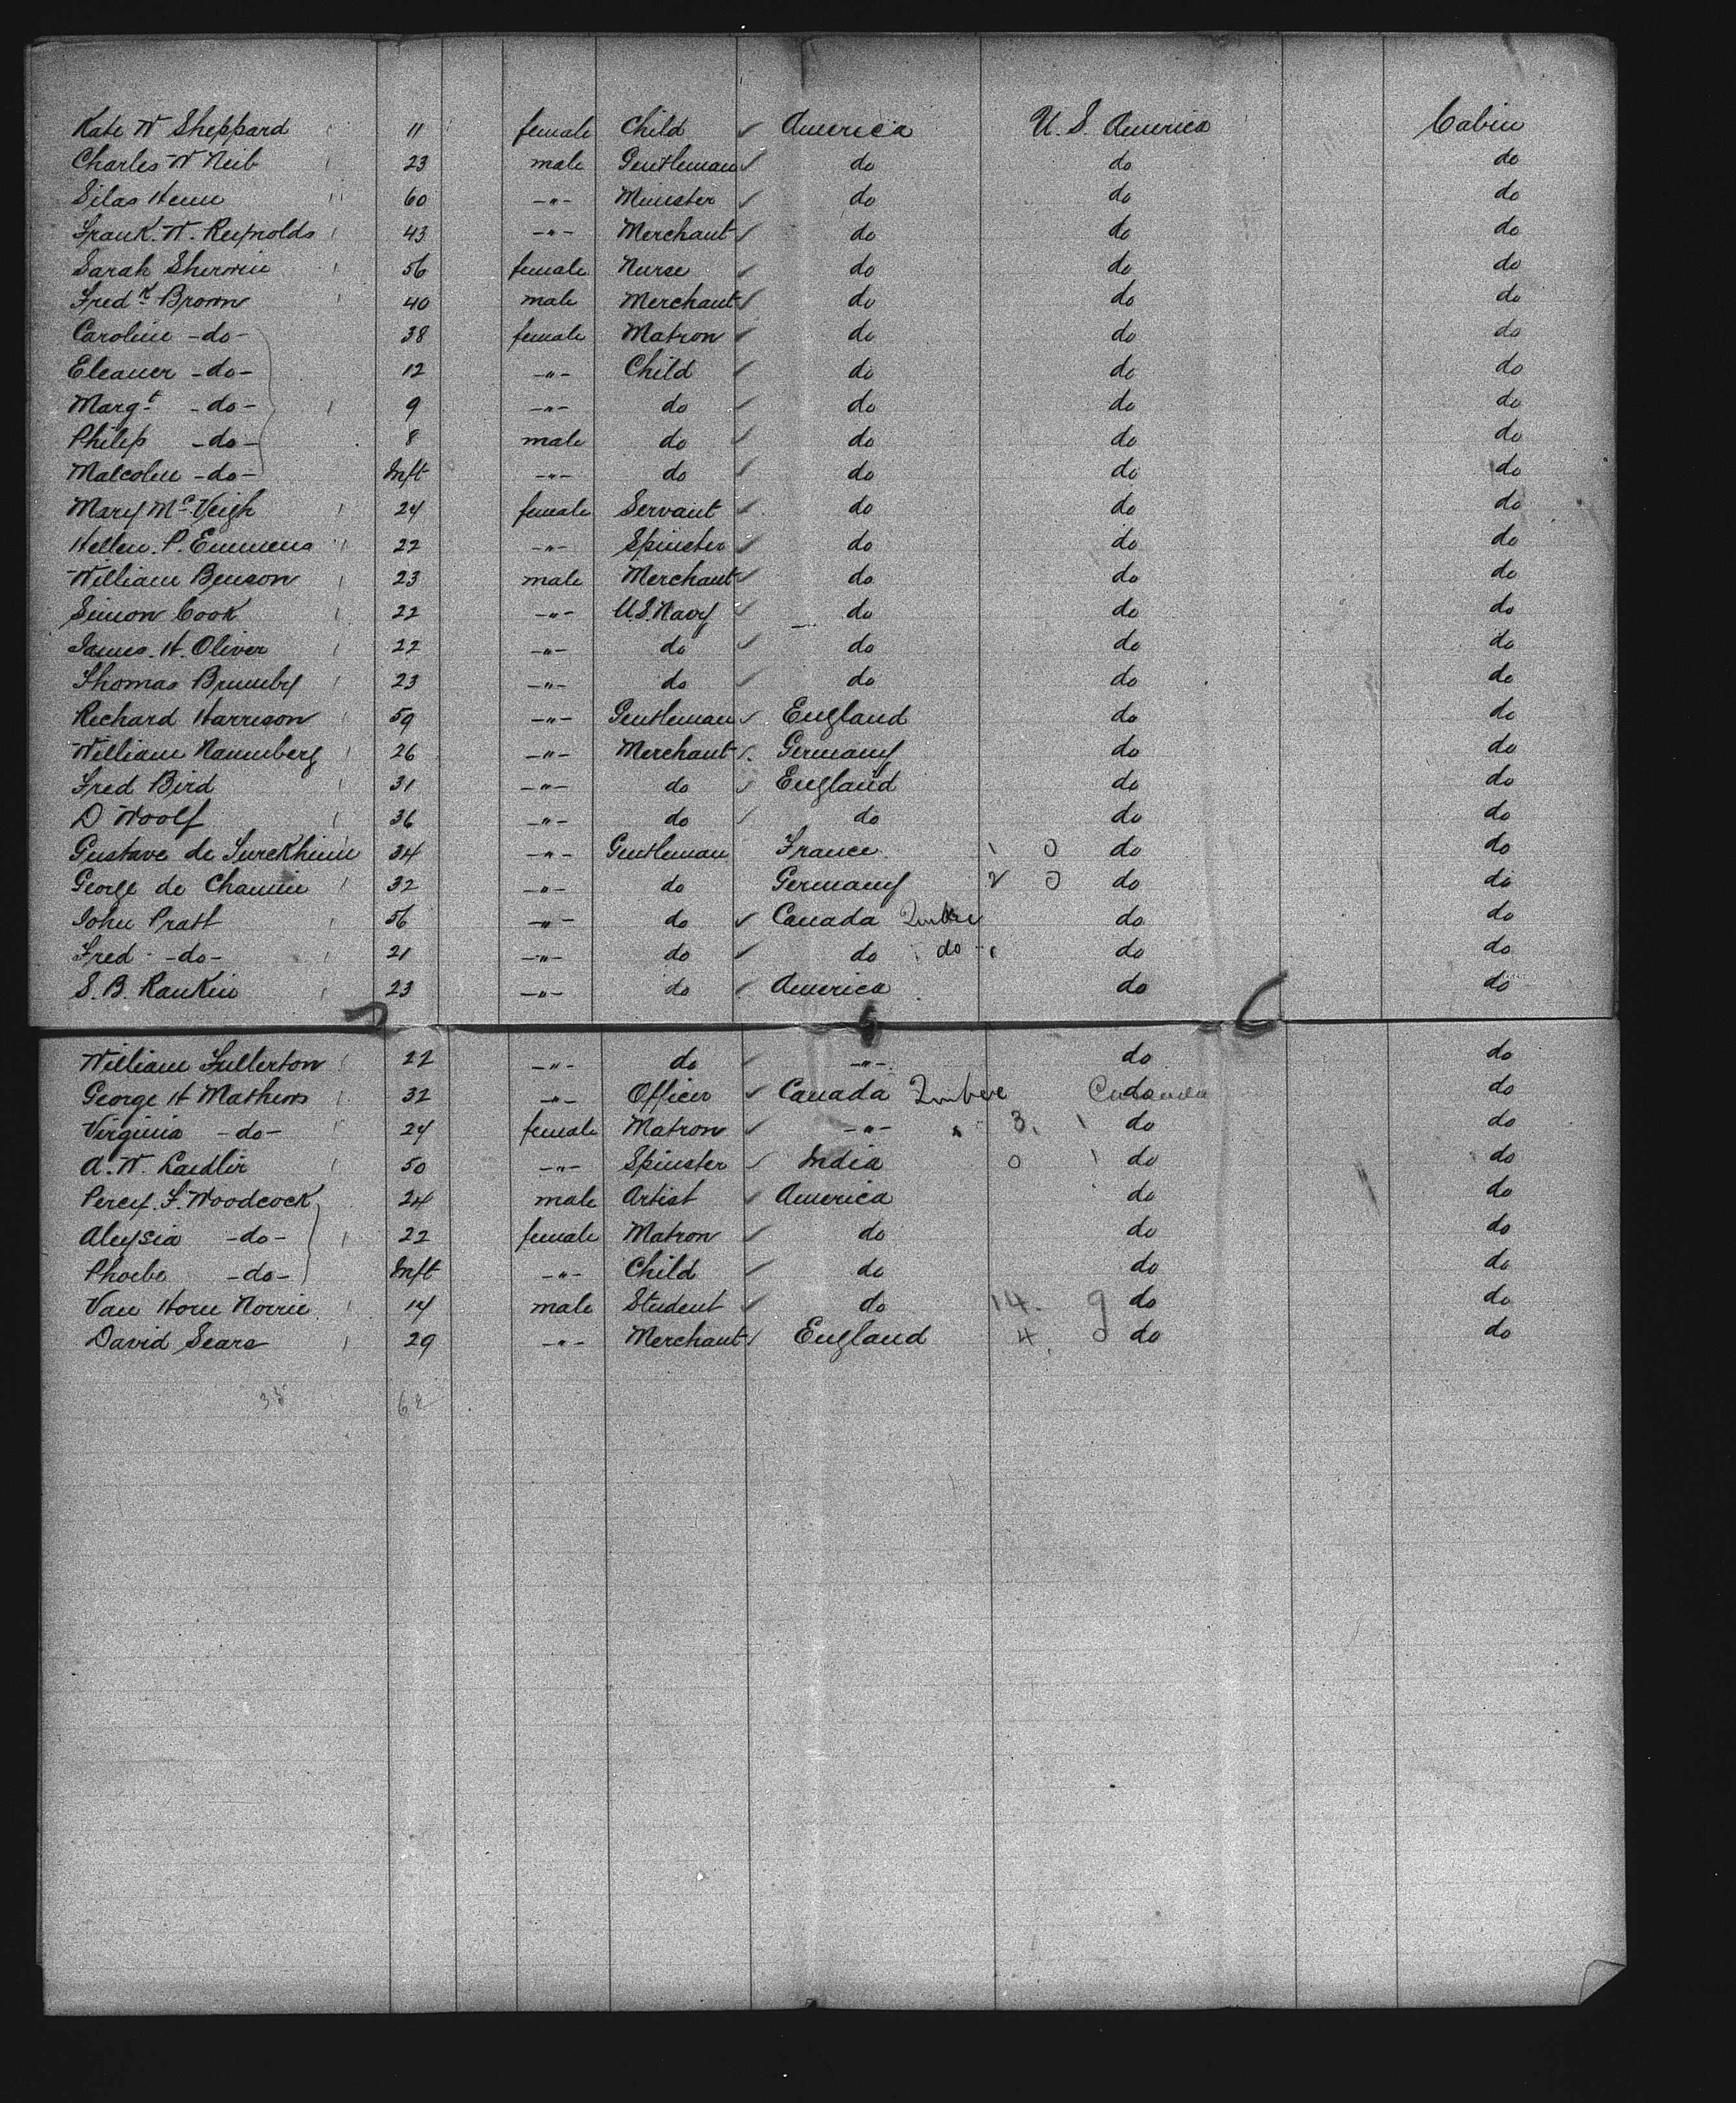 Kate W Sheppard 11 female Child America U.S. America Cabin
Charles W Neib 23 male Gentleman do do do
Silas Henn 60 -"- Minister do do do
Frank. W. Reynolds 43 -"- Merchant do do do
Sarah Sherwin 56 female Nurse do do do
Fredk Brown 40 male Merchant do do do
Caroline -do- 38 female Matron do do do
Eleaner -do- 12 -"- Child do do do
Margt -do- 9 -"- do do do do
Philip -do- 8 male do do do do
Malcolm -do- Inft -"- do do do do
Mary McVeigh 24 female Servant do do do
Hellen. P. Emmens 22 -"- Spinster do do do
William Benson 23 male Merchant do do do
Simon Cook 22 -"- U.S. Navy do do do
James. H. Oliver 22 -"- do do do do
Thomas Brumby 23 -"- do do do do
Richard Harrison 59 -"- Gentleman England do do
William Naumberg 26 -"- Merchant Germany do do
Fred Bird 31 -"- do England do do
D Woolf 36 -"- do do do do
Gustave de 34 -"- Gentleman France 1 0 do do
George de 32 -"- do Germany 2 0 do do
John Pratt 56 -"- do Canada do do
Fred -do- 21 -"- do do do do do
S. B. Rankin 23 -"- do America do do
William Fullerton 22 -"- do -"- do do
George H Mathews 32 -"- Officer Canada do do
Virginia -do- 24 female Matron -"- 3. 1 do do
A. W. Laidlir 50 -"- Spinster India 0 1 do do
Percy. F. Woodcock 24 male Artist America do do
Aleysia -do- 22 female Matron do do do
Phoebe -do- Inft -"- Child do do do
Van Horn Norrie 14 male Student do 14. 9 do do
David Sears 29 -"- Merchant England 4. 0 do do
35 62